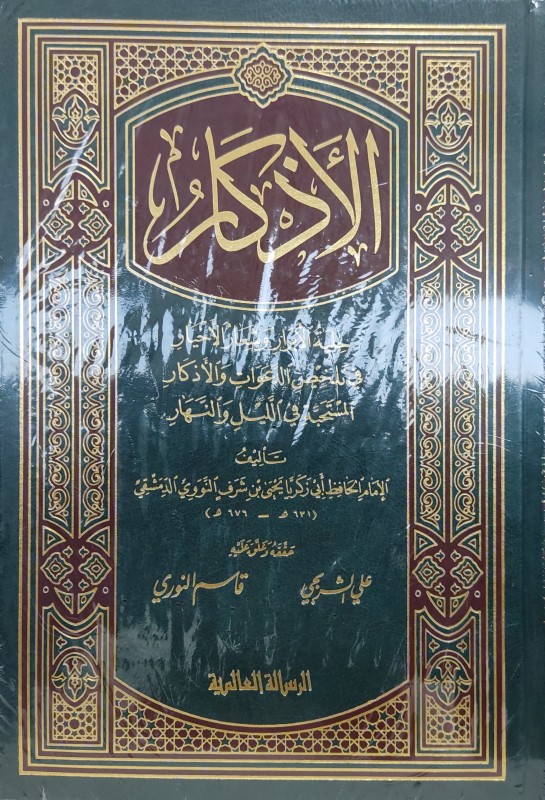 الأذكار
حلية الأبرار وشعار الأخيار
في تلخيص الدعوات والأذكار
المستحبة في الليل والنهار
تأليف
الإمام الحافظ أبي زكريا يحيى بن شرف النووي الدمشقي
(٦٣١ هـ – ٦٧٦ هـ)
حققه وعلق عليه
علي الشربجي قاسم النوري
الرسالة العالمية